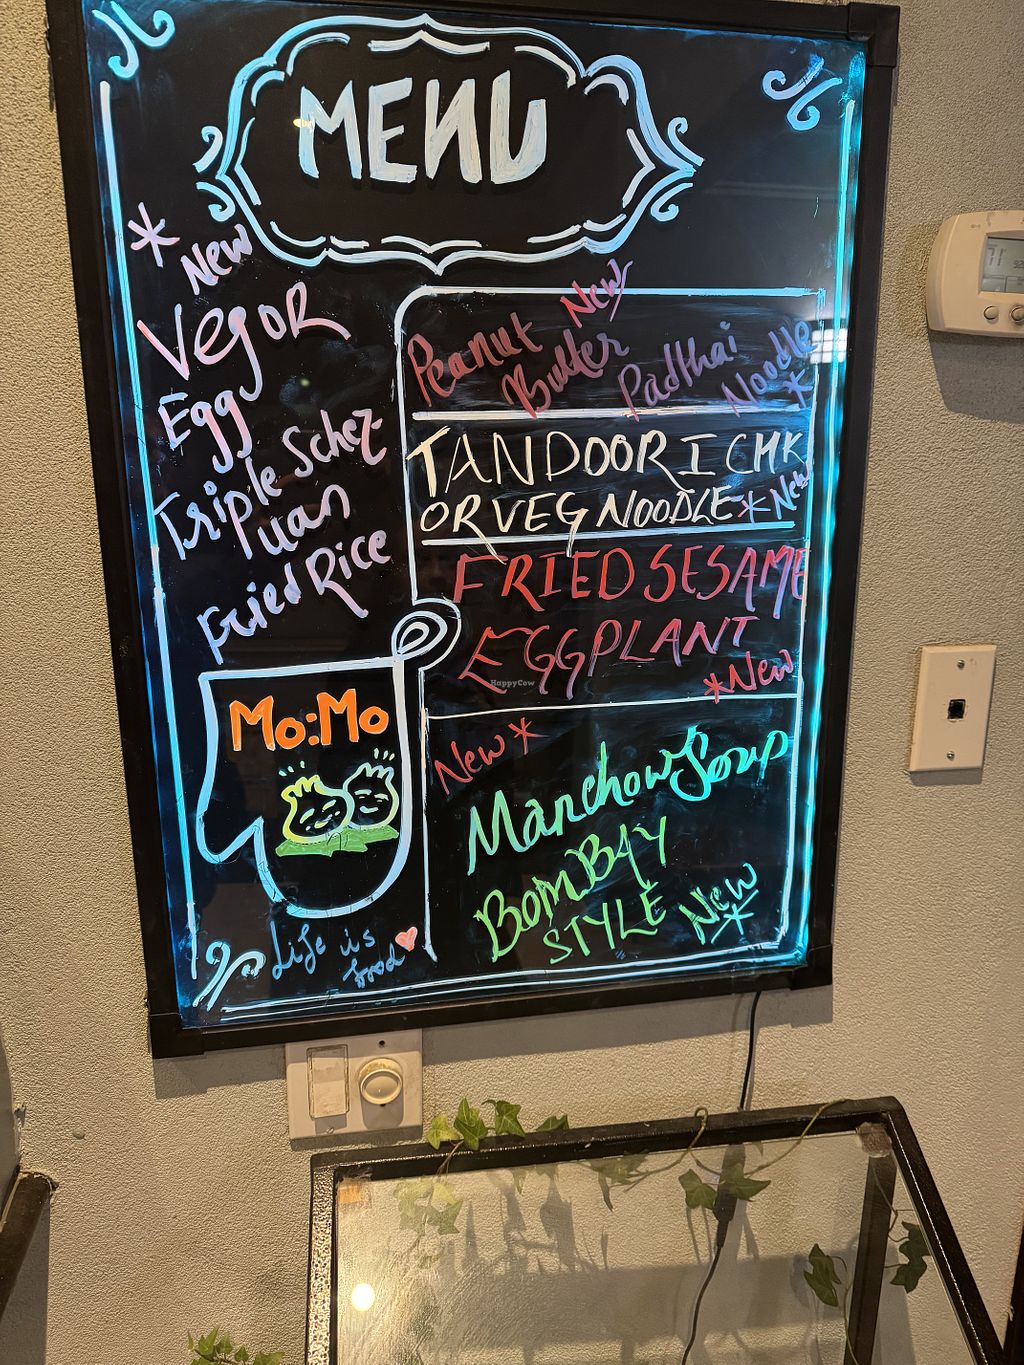 MENU
* New
Veg OR
Egg
Triple Schez
uan
Fried Rice
Mo:Mo
Life is
food
New
Peanut Butter Padthai Noodle *
TANDOORI CHK
OR VEG NOODLE * New
FRIED SESAME
EGGPLANT
*New
New *
Manchow Soup
BOMBAY
STYLE New
*
HappyCow